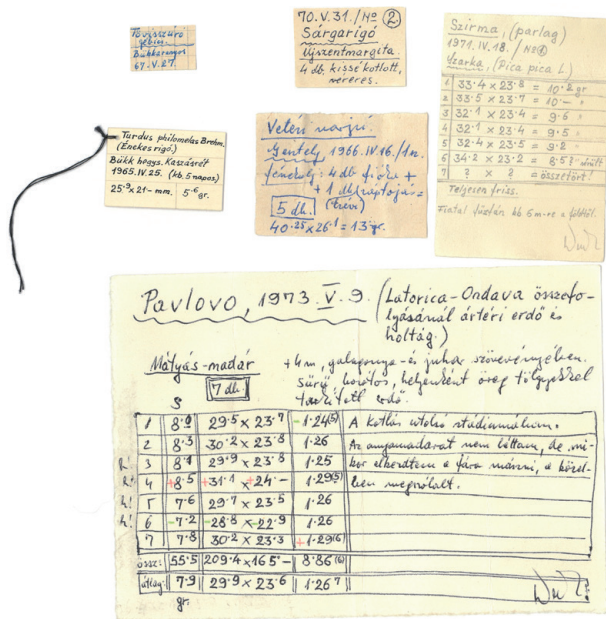 Tövisszúró
gébics.
Bükkszentgy.
67.V.27.
70.V.31./No 2.
Sárgarigó
Újszentmargita.
4 db. kissé kotlott,
véreres.
Szirma, (parlag)
1971.IV.18. / No 1
Szarka, (Pica pica L)
1 33.4 x 23.8 = 10.2 gr
2 33.5 x 23.7 = 10.- "
3 32.1 x 23.4 = 9.6 "
4 32.1 x 23.4 = 9.5 "
5 32.4 x 23.5 = 9.2 "
6 34.2 x 23.2 = 8.5?
7 ? x ? = összetört!
Teljesen friss.
Fiatal fűzfán kb 5 m-re a földtől.
Turdus philomelos Brehm.
(Énekes rigó.)
Bükk hegys. Kaszásrét
1965.IV.25. (kb. 5 napos)
25.9 x 21 - mm. 5.6 gr.
Vetési varjú
Gesztely 1966.IV.16./1n.
fészekalj: 4 db fióka +
+ 1 db záptojás =
5 db.
40.25 x 26.1 = 13 gr.
Pavlovo, 1973.V.9.
(Latorica-Ondava összefo-
lyásánál ártéri erdő és
holtág.)
Mátyás-madár
7 db.
+4m, galagonya- és juhar szövevényében.
Sűrű, bozótos, helyenként öreg tölgyekkel
tarkított erdő.
1 8.0 29.5 x 23.7 -1.24(5) A kotlás utolsó stádiumában.
2 8.3 30.2 x 23.8 1.26 Az anyamadarat nem láttam, de mi-
R! 3 8.1 29.9 x 23.8 1.25 kor elkezdtem a fára mászni, a közel-
R! 4 +8.5 +31.1 x +24.- 1.29(5) ben megszólalt.
h! 5 7.6 29.7 x 23.5 1.26
h! 6 -7.2 -28.8 x -22.9 1.26
7 7.8 30.2 x 23.3 +1.29(6)
össz: 55.5 209.4 x 165.- 8.86(6)
átlag: 7.9 29.9 x 23.6 1.26 7
gr.